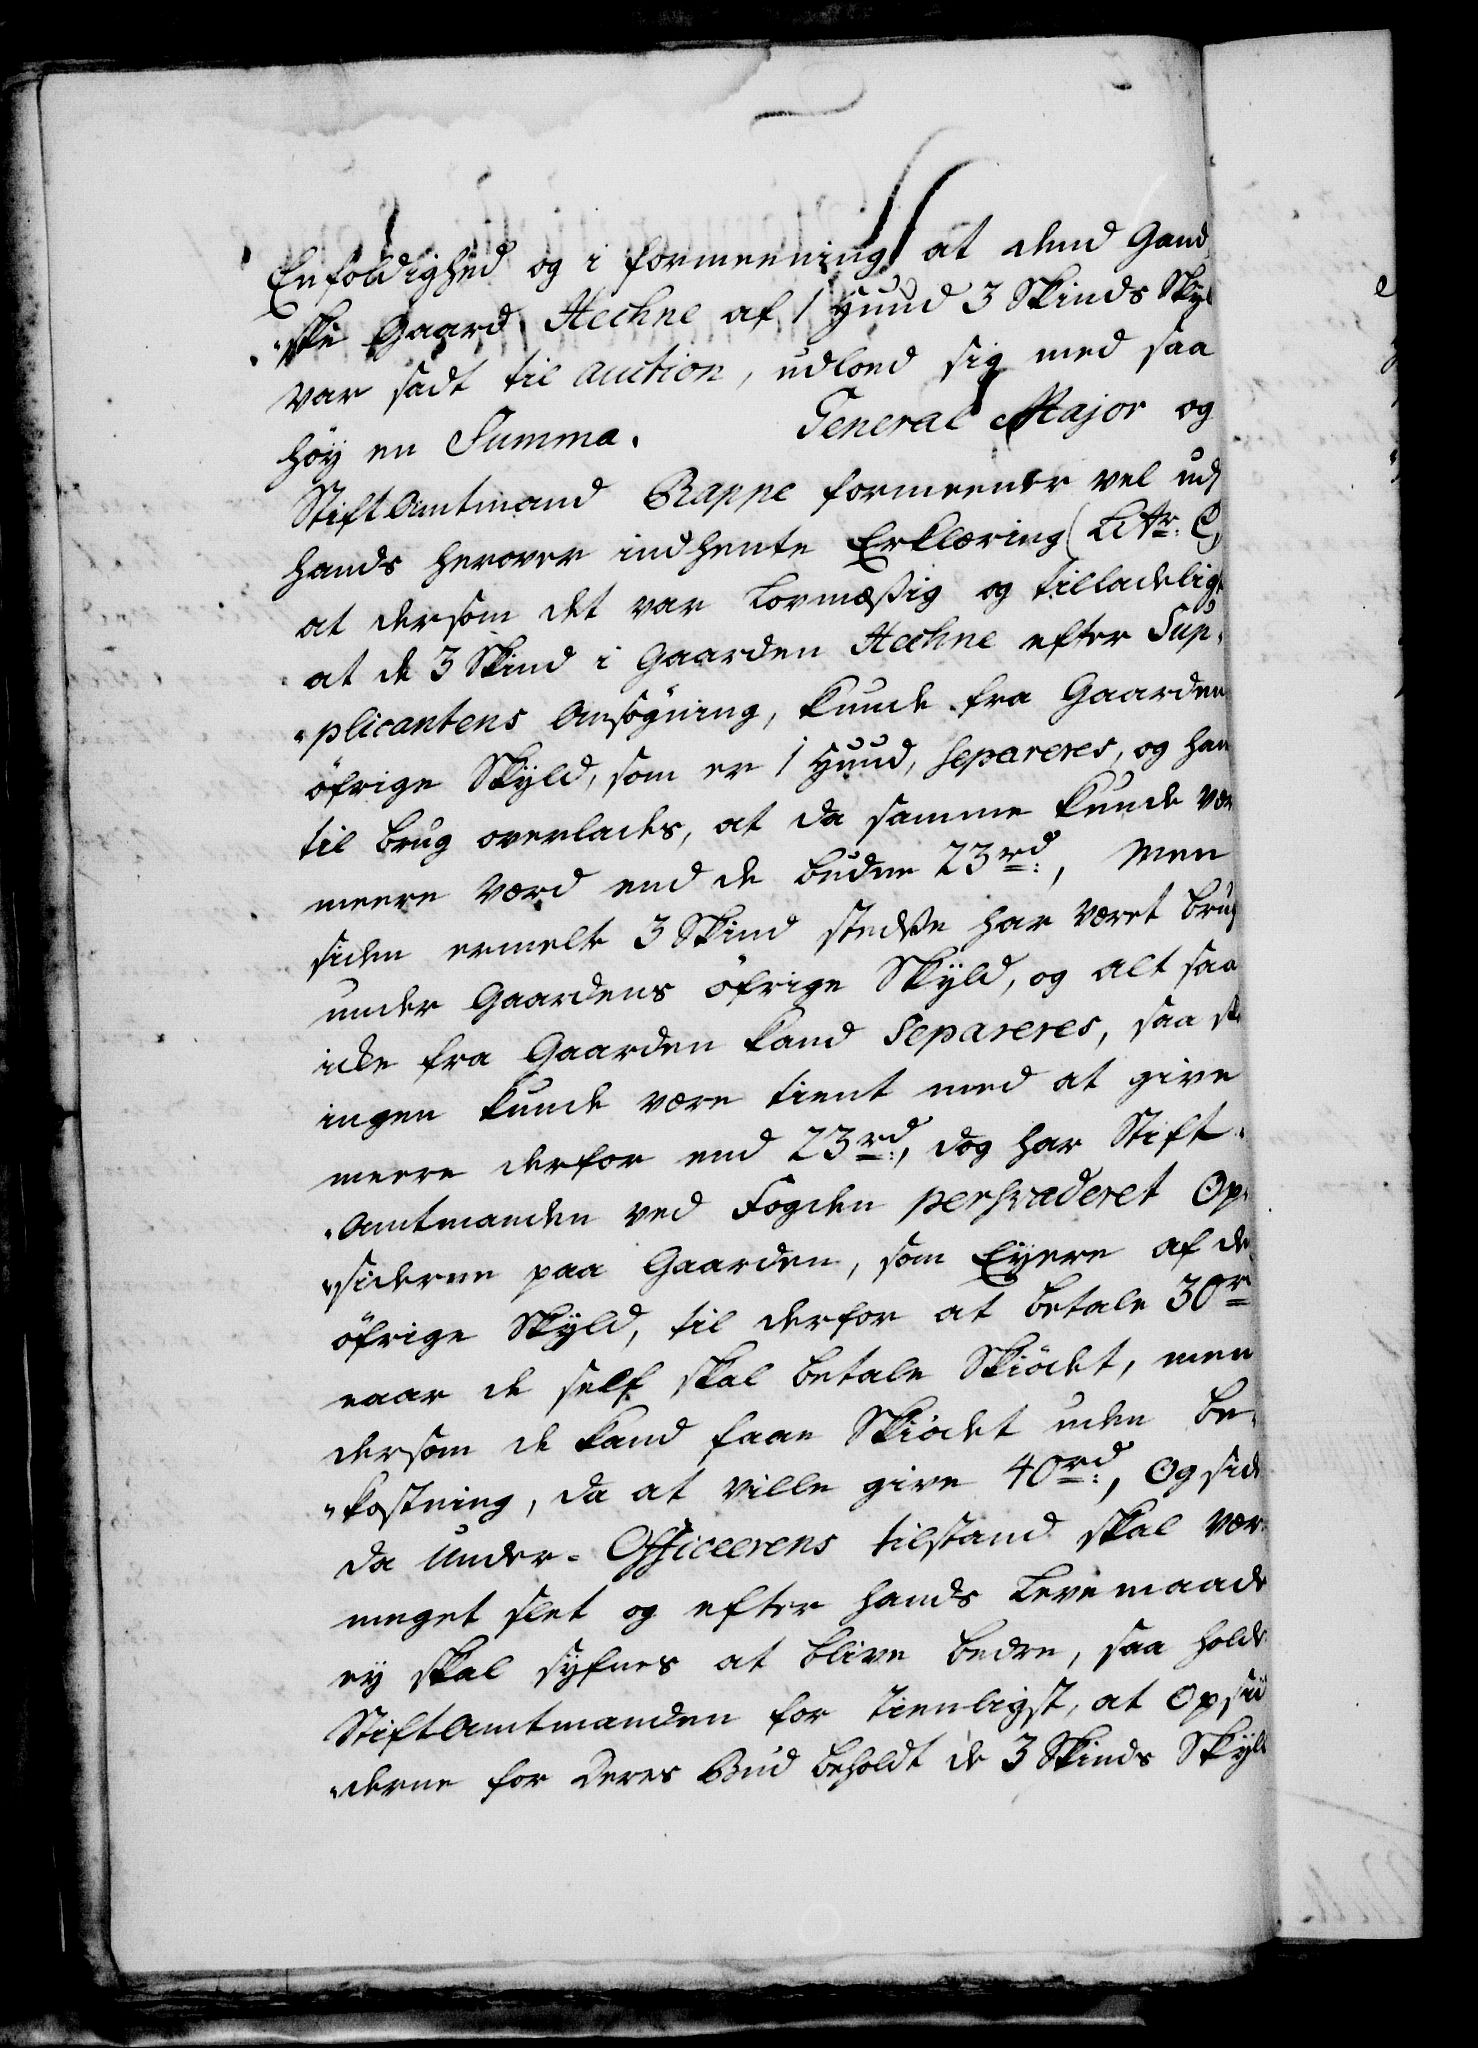 Enfoldighed og i formeening at dend Gand
ske Gaard Hechne af 1 Huud 3 Skinds Skyl
var sadt til auction, udloed sig med saa
höy en Summa. General Major og
StiftAmtmand Rappe formeener vel udj
hands herover indhente Erklæring (Littr: C,
at dersom det var Lovmæssig og tilladeligt
at de 3 Skind i Gaarden Hechne efter Sup-
plicantens Ansögning, kunde fra Gaarden
öfrige Skyld, som er 1 Huud, separeres, og ham
til brug overlades, at da samme kunde vær
meere værd end de budne 23rd:, Men
siden ermelte 3 Skind stedse har været brug
under Gaardens öfrige Skyld, og alt saa
icke fra Gaarden kand Separeres, saa sk
ingen kunde være tient med at give
meere derfor end 23rd:, dog har Stift-
Amtmanden ved Fogden persvaderet Op-
siderne paa Gaarden, som Eyere af de
öfrige Skyld, til derfor at betale 30r
naar de self skal betale Skiödet, men
dersom de kand faae Skiödet uden be-
kostning, da at ville give 40rd:, Og side
da Under-Officeerens tilstand skal vær
meget slet og efter hands Levemaade
ey skal syfnes at blive bedre, saa holde
StiftAmtmanden for tienligst, at Opsid
derne for deres Bud beholdt de 3 Skinds Skyld